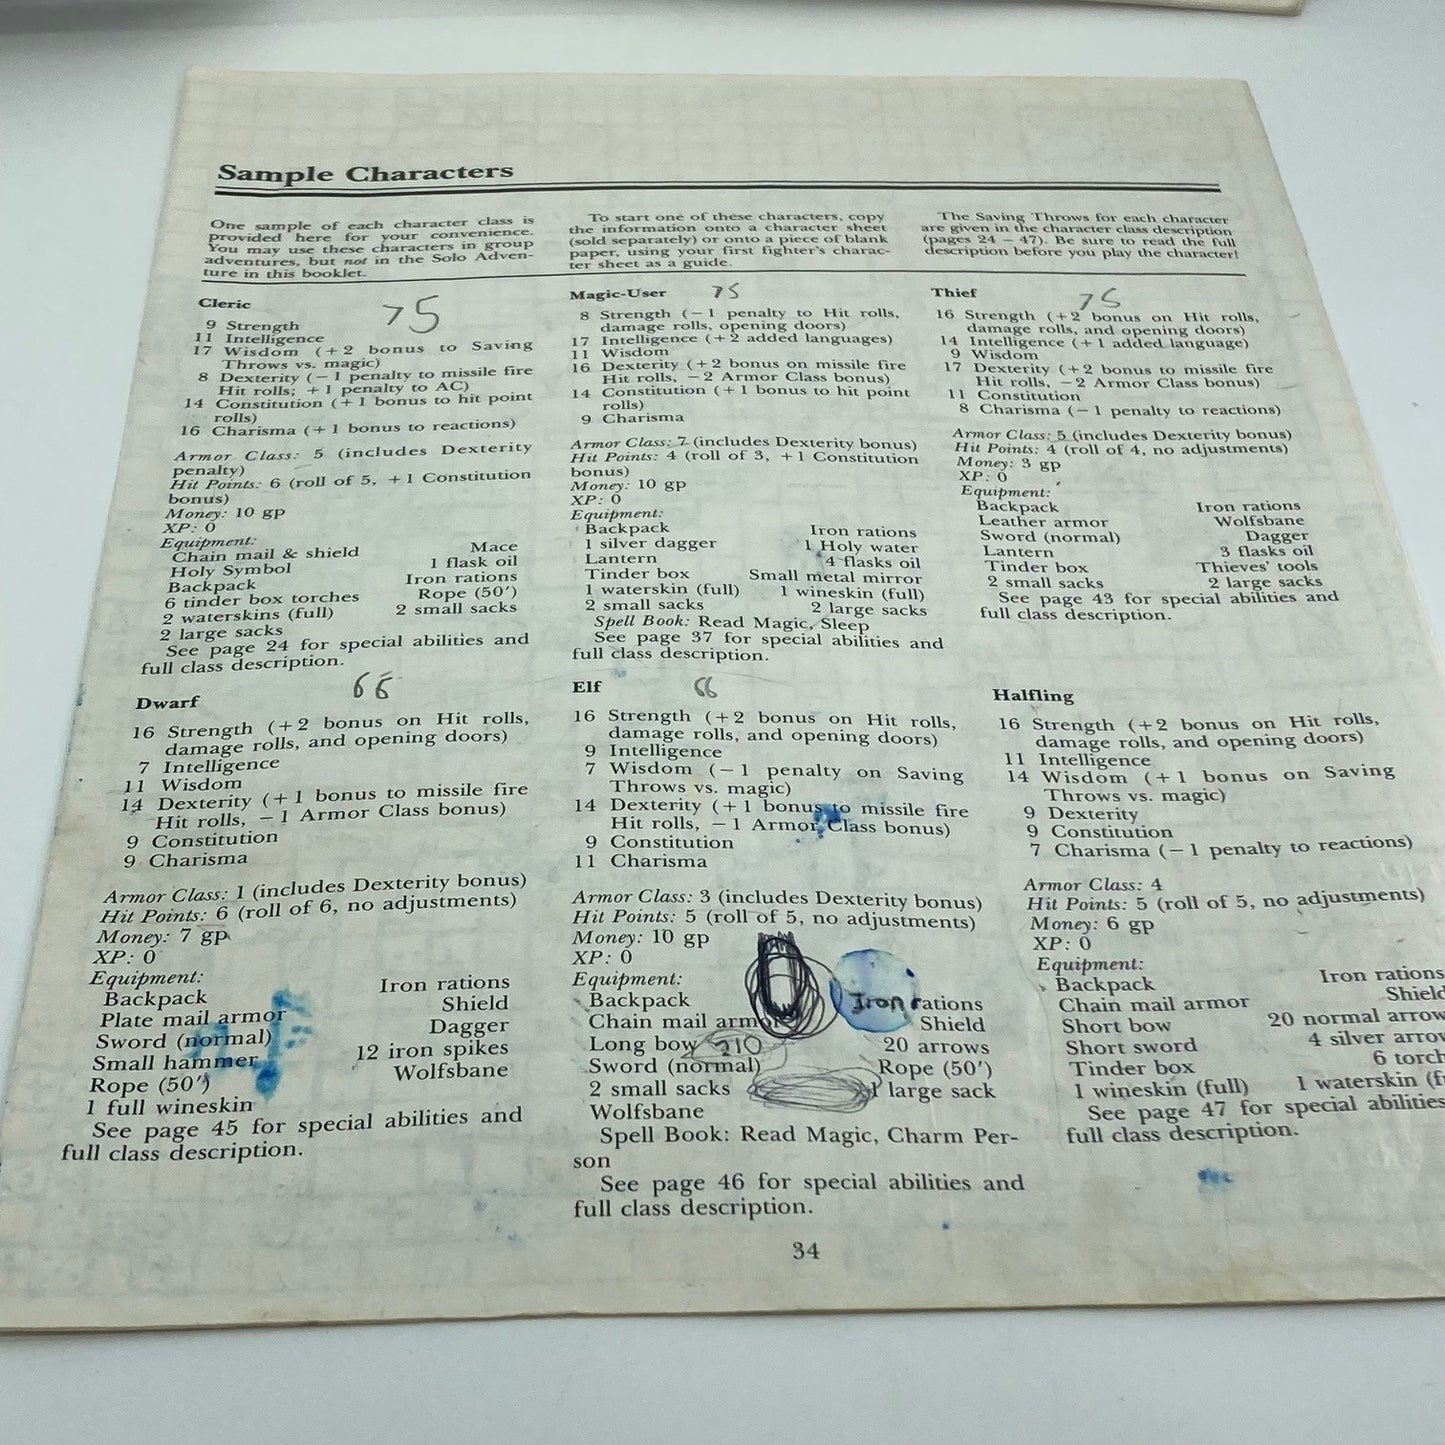 Sample Characters
One sample of each character class is
provided here for your convenience.
You may use these characters in group
adventures, but not in the Solo Adven-
ture in this booklet.
To start one of these characters, copy
the information onto a character sheet
(sold separately) or onto a piece of blank
paper, using your first fighter's charac-
ter sheet as a guide.
The Saving Throws for each character
are given in the character class description
(pages 24 – 47). Be sure to read the full
description before you play the character!
Cleric 75
9 Strength
11 Intelligence
17 Wisdom (+2 bonus to Saving
Throws vs. magic)
8 Dexterity (−1 penalty to missile fire
Hit rolls; +1 penalty to AC)
14 Constitution (+1 bonus to hit point
rolls)
16 Charisma (+1 bonus to reactions)
Armor Class: 5 (includes Dexterity
penalty)
Hit Points: 6 (roll of 5, +1 Constitution
bonus)
Money: 10 gp
XP: 0
Equipment:
Chain mail & shield Mace
Holy Symbol 1 flask oil
Backpack Iron rations
6 tinder box torches Rope (50')
2 waterskins (full) 2 small sacks
2 large sacks
See page 24 for special abilities and
full class description.
Magic-User 75
8 Strength (−1 penalty to Hit rolls,
damage rolls, opening doors)
17 Intelligence (+2 added languages)
11 Wisdom
16 Dexterity (+2 bonus on missile fire
Hit rolls, −2 Armor Class bonus)
14 Constitution (+1 bonus to hit point
rolls)
9 Charisma
Armor Class: 7 (includes Dexterity bonus)
Hit Points: 4 (roll of 3, +1 Constitution
bonus)
Money: 10 gp
XP: 0
Equipment:
Backpack Iron rations
1 silver dagger 1 Holy water
Lantern 4 flasks oil
Tinder box Small metal mirror
1 waterskin (full) 1 wineskin (full)
2 small sacks 2 large sacks
Spell Book: Read Magic, Sleep
See page 37 for special abilities and
full class description.
Thief 75
16 Strength (+2 bonus on Hit rolls,
damage rolls, and opening doors)
14 Intelligence (+1 added language)
9 Wisdom
17 Dexterity (+2 bonus to missile fire
Hit rolls, −2 Armor Class bonus)
11 Constitution
8 Charisma (−1 penalty to reactions)
Armor Class: 5 (includes Dexterity bonus)
Hit Points: 4 (roll of 4, no adjustments)
Money: 3 gp
XP: 0
Equipment:
Backpack Iron rations
Leather armor Wolfsbane
Sword (normal) Dagger
Lantern 3 flasks oil
Tinder box Thieves' tools
2 small sacks 2 large sacks
See page 43 for special abilities and
full class description.
Dwarf 66
16 Strength (+2 bonus on Hit rolls,
damage rolls, and opening doors)
7 Intelligence
11 Wisdom
14 Dexterity (+1 bonus to missile fire
Hit rolls, −1 Armor Class bonus)
9 Constitution
9 Charisma
Armor Class: 1 (includes Dexterity bonus)
Hit Points: 6 (roll of 6, no adjustments)
Money: 7 gp
XP: 0
Equipment:
Backpack Iron rations
Plate mail armor Shield
Sword (normal) Dagger
Small hammer 12 iron spikes
Rope (50') Wolfsbane
1 full wineskin
See page 45 for special abilities and
full class description.
Elf 66
16 Strength (+2 bonus on Hit rolls,
damage rolls, and opening doors)
9 Intelligence
7 Wisdom (−1 penalty on Saving
Throws vs. magic)
14 Dexterity (+1 bonus to missile fire
Hit rolls, −1 Armor Class bonus)
9 Constitution
11 Charisma
Armor Class: 3 (includes Dexterity bonus)
Hit Points: 5 (roll of 5, no adjustments)
Money: 10 gp
XP: 0
Equipment:
Backpack Iron rations
Chain mail armor Shield
Long bow 210 20 arrows
Sword (normal) Rope (50')
2 small sacks 1 large sack
Wolfsbane
Spell Book: Read Magic, Charm Per-
son
See page 46 for special abilities and
full class description.
Halfling
16 Strength (+2 bonus on Hit rolls,
damage rolls, and opening doors)
11 Intelligence
14 Wisdom (+1 bonus on Saving
Throws vs. magic)
9 Dexterity
9 Constitution
7 Charisma (−1 penalty to reactions)
Armor Class: 4
Hit Points: 5 (roll of 5, no adjustments)
Money: 6 gp
XP: 0
Equipment:
Backpack Iron rations
Chain mail armor Shield
Short bow 20 normal arrow
Short sword 4 silver arro
Tinder box 6 torch
1 wineskin (full) 1 waterskin (f
See page 47 for special abilities
full class description.
34